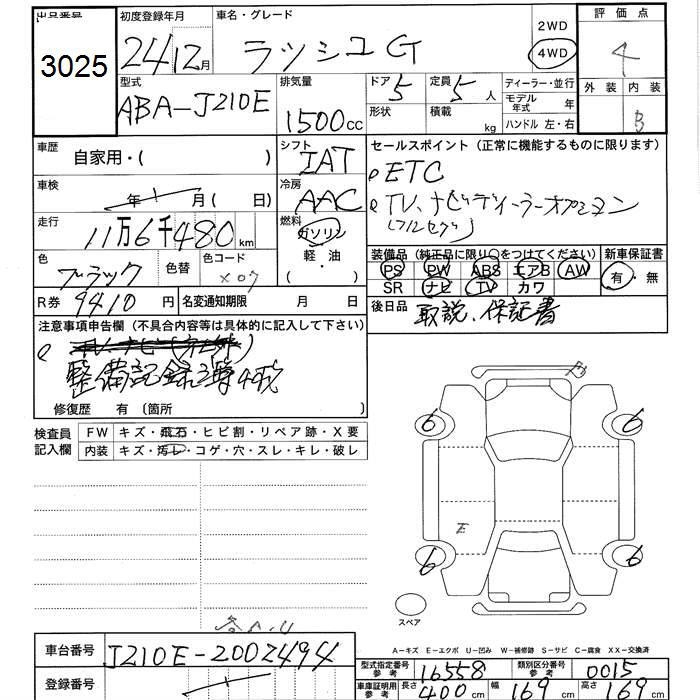 出品番号 初度登録年月 車名・グレード 2WD 評価点
3025 24 12月 ラッシュG 4WD 4
型式 排気量 ドア 5 定員 5人 ディーラー・並行 外装 内装
ABA-J210E 1500cc 形状 積載 kg モデル年式 年 B
ハンドル 左・右
車歴 自家用・( ) シフト IAT セールスポイント (正常に機能するものに限ります)
車検 年 月( 日) 冷房 AAC ETC
TV、ナビディーラーオプション
(フルセグ)
走行 11万6千480km 燃料 ガソリン 軽油・( )
装備品(純正品に限り○をつけてください) 新車保証書
色 ブラック 色替 色コード X07 PS PW ABS エアB AW 有・無
SR ナビ TV カワ
R券 9410円 名変通知期限 月 日 後日品 取説、保証書
注意事項申告欄(不具合内容等は具体的に記入して下さい)
整備記録簿4枚
修復歴 有(箇所 )
検査員記入欄 FW キズ・飛石・ヒビ割・リペア跡・X要
内装 キズ・汚レ・コゲ・穴・スレ・キレ・破レ
6 6
E
6 6
スペア
A-キズ E-エクボ U-凹み W-補修跡 S-サビ C-腐食 XX-交換済
車台番号 J210E-2002494 型式指定番号参考 16558 類別区分番号参考 0015
登録番号 車庫証明用参考 長さ 400cm 幅 169cm 高さ 169cm